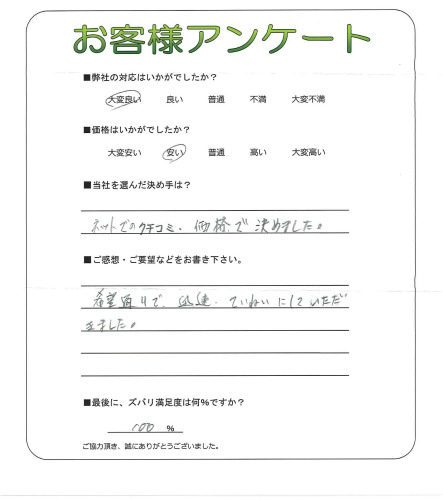 お客様アンケート
■弊社の対応はいかがでしたか？
大変良い 良い 普通 不満 大変不満
■価格はいかがでしたか？
大変安い 安い 普通 高い 大変高い
■当社を選んだ決め手は？
ネットでのクチコミ、価格で決めました。
■ご感想・ご要望などをお書き下さい。
希望通りで、迅速、ていねいにしていただ
きました。
■最後に、ズバリ満足度は何％ですか？
100 %
ご協力頂き、誠にありがとうございました。